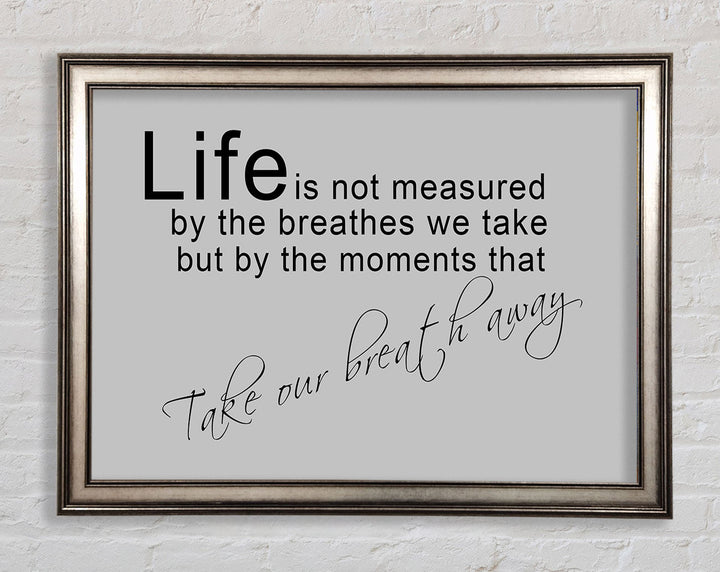 Life is not measured
by the breathes we take
but by the moments that
Take our breath away